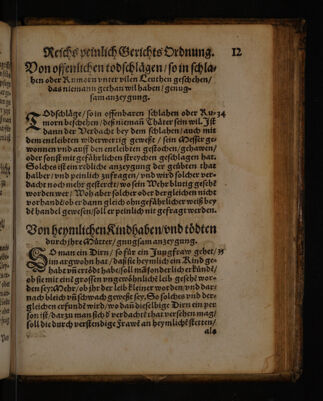 Reichs peinlich Gerichts Ordnung. 12
Von offenlichen todschlägen / so in schla-
hen oder Rumorn vnter vilen Leuthen geschehen /
das niemann gethan wil haben / genug-
sam anzeygung.
TOdschläge / so in offenbaren schlahen oder Ru- 34
morn beschehen / deß niemañ Thäter sein wil. Ist
dann der Verdacht bey dem schlahen / auch mit
dem entleibten widerwertig geweßt / sein Messer ge-
wonnen vnd auff den entleibten gestochen / gehawen /
oder sonst mit gefährlichen streychen geschlagen hat.
Solches ist ein redliche anzeygung der geübten that
halber / vnd peinlich zufragen / vnd wird solcher ver-
dacht noch mehr gesterckt / wo sein Wehr blutig gesehē
worden wer / Wo aber solcher oder der gleichen nicht
vorhandē / ob er dann gleich ohngefährlicher weiß bey
dē handel gewesen / soll er peinlich nit gefragt werden.
Von heymlichen Kindhaben / vnd tödten
durch jre Mütter / gnugsam anzeygung.
SO man ein Dirn / so für ein Jungfraw gehet / 35
im argwohn hat / daß sie heymlich ein Kind ge-
habt vñ ertödt habe / soll mā sonderlich erkündē /
ob sie mit einē grossen vngewöhnlichē leib gesehē wor-
den sey: Mehr / ob jhr der leib kleiner worden vnd dar-
nach bleich vñ schwach geweßt sey. So solches vnd der-
gleichen erfundē wird / wo dañ dieselbige Dirn ein per-
son ist / dar zu man sich dē verdacht that versehen mag /
soll die durch verstendige Frawē an heymlichē stetten /
als